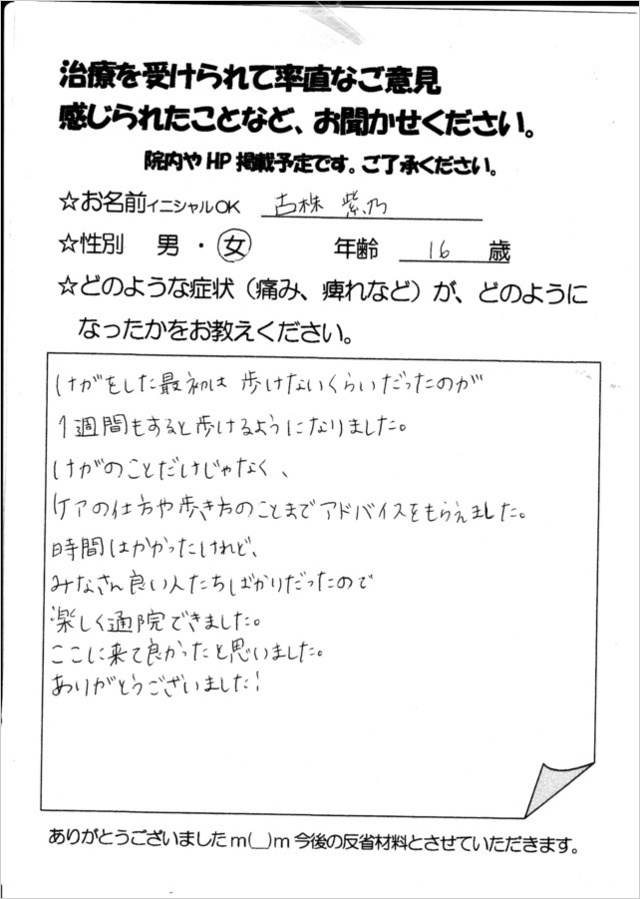 治療を受けられて率直なご意見
感じられたことなど、お聞かせください。
院内や HP 掲載予定です。ご了承ください。
☆お名前イニシャルOK 古株 紫乃
☆性別 男 ・ 女 年齢 16 歳
☆どのような症状（痛み、痺れなど）が、どのように
なったかをお教えください。
けがをした最初は 歩けないくらいだったのが
1週間もすると歩けるようになりました。
けがのことだけじゃなく、
ケアの仕方や歩き方のことまでアドバイスをもらえました。
時間はかかったけれど、
みなさん良い人たちばかりだったので
楽しく通院できました。
ここに来て良かったと思いました。
ありがとうございました!
ありがとうございましたm(__)m今後の反省材料とさせていただきます。